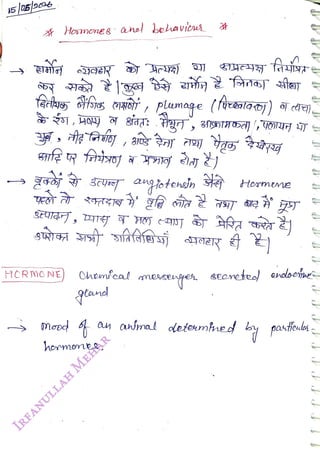 15/05/2026
* Hormones and behaviours *
→ हार्मोन व्यवहार को प्रत्यक्ष या अप्रत्यक्ष नियंत्रित
कर सकते है। कुछ ऐसे हार्मोन है जिनका सीधा
द्वितीयक लैंगिक लक्षणों, plumage (पिच्छावरण) व त्वचा
के रंग, प्रणय व अंततः मैथुन, आक्रामकता, पलायन या
युद्ध, नीड़ निर्माण, अण्डे देना तथा पैतृक देखरेख
आदि पर नियंत्रण व प्रभाव होता है।
→ वृक्कों से उत्पन्न angiotensin जैसे Hormone
पहले तो रक्तदाब में वृद्धि लाते है तथा बाद में मूत्र
उत्पादन, प्यास व मल त्याग को प्रेरित करते है।
उपरोक्त सभी गतिविधियाँ व्यवहार ही है।
HORMONE Chemical messenger secreted endocrine
gland
→ mood of an animal determined by particular
hormones.
IRFANULLAH MEHAR